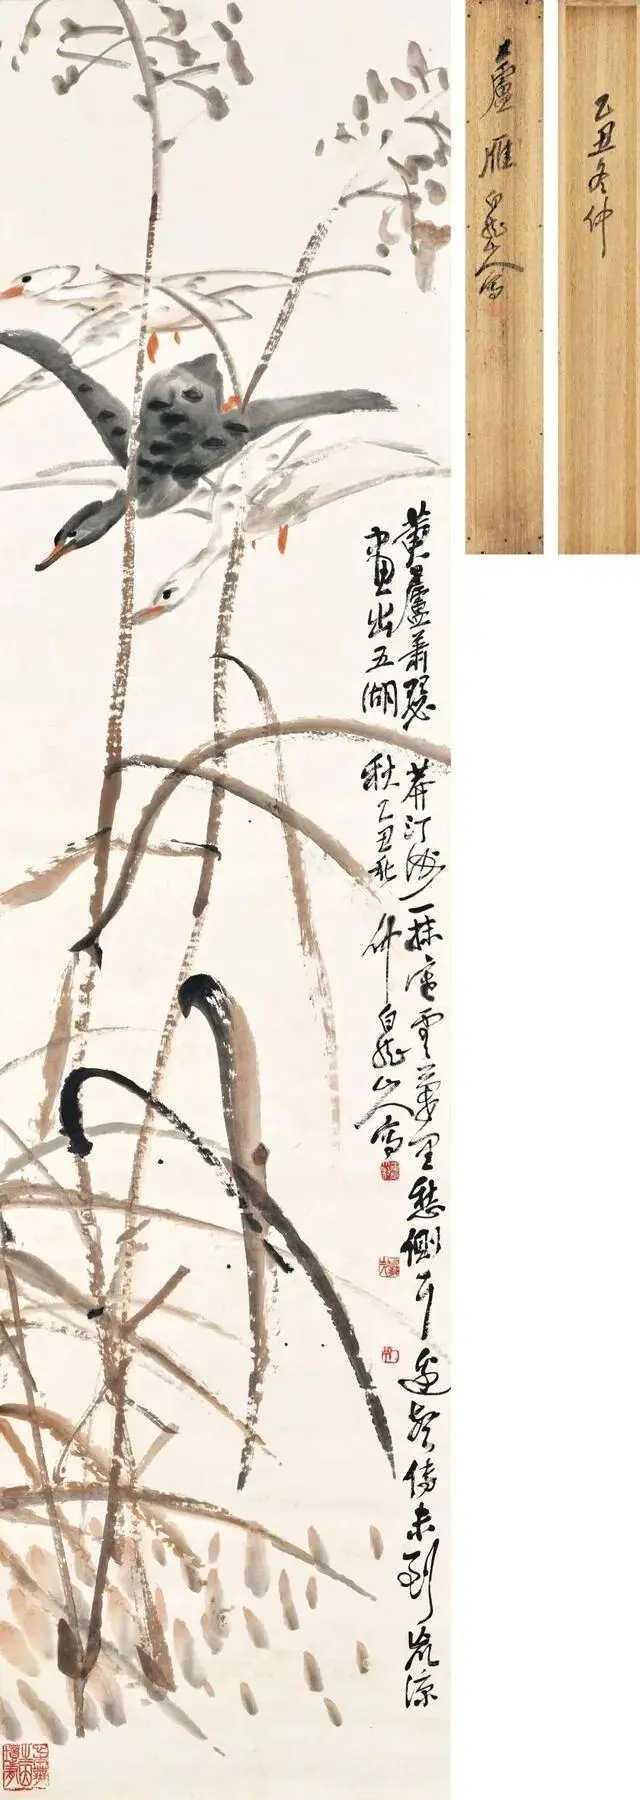 黄蘆蕭瑟莽汀洲一抹寒雲萬里愁側耳邊聲傳未到荒涼
畫出五湖秋乙丑秋仲白龍山人寫
蘆雁白龍山人寫
乙丑冬仲